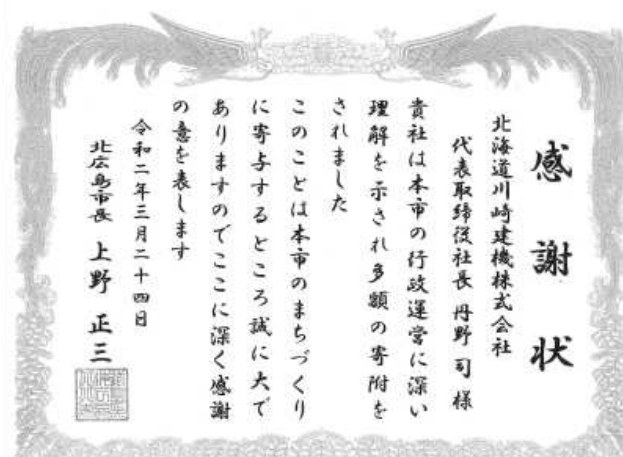 感謝状
北海道川崎建機株式会社
代表取締役社長 丹野司様
貴社は本市の行政運営に深い
理解を示され多額の寄附を
されました
このことは本市のまちづくり
に寄与するところ誠に大で
ありますのでここに深く感謝
の意を表します
令和二年三月二十四日
北広島市長 上野正三